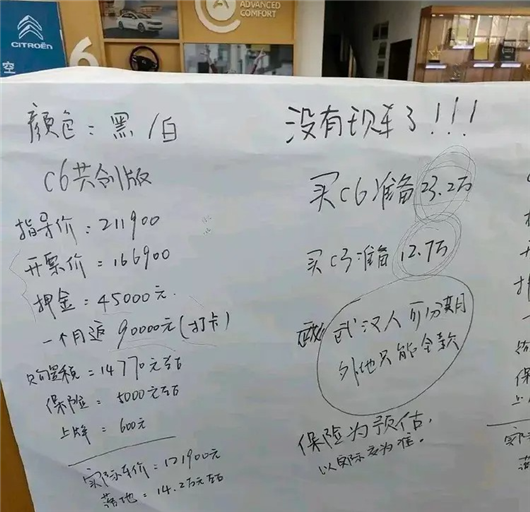 CITROËN
空
6
ADVANCED
COMFORT
颜色：黑/白
C6共创版
指导价：211900
开票价：166900
押金：45000元
一个月返 90000元（打卡）
购置税=14770元左右
保险：5000元左右
上牌：600元
实际车价：121900元
落地：14.2万元左右
没有现车了！！！
买C6准备23.2万
买C3准备12.7万
武汉人可分期
外地只能全款
保险为预估，
以实际为准。